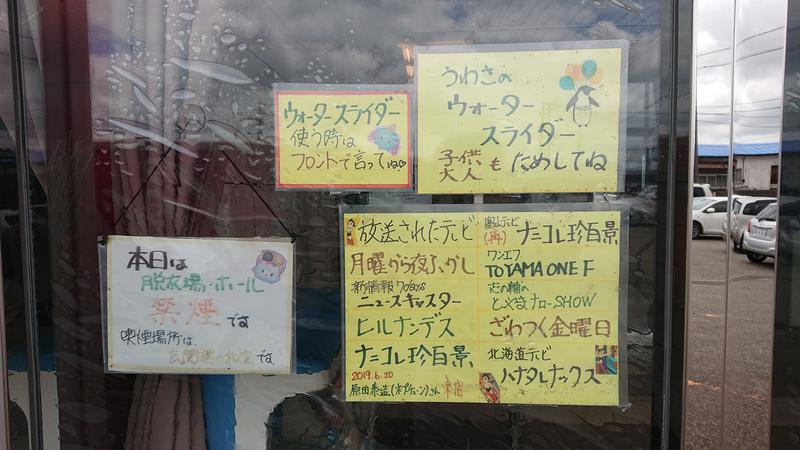 ウォータースライダー
使う時は
フロントで言ってね♡
うわさの
ウォーター
スライダー
子供
大人
も ためしてね
本日は
脱衣場・ホール
禁煙です
喫煙場所は、
です
放送されたテレビ
月曜から夜ふかし
新情報7days
ニュースキャスター
ヒルナンデス
ナニコレ珍百景
2019.6.20
原田泰造(ネプチューン)さん 来店
富山テレビ
(再) ナニコレ珍百景
ワンエフ
TOYAMA ONE F
志の輔の
とやまナローSHOW
ざわつく金曜日
北海道テレビ
ハナタレナックス